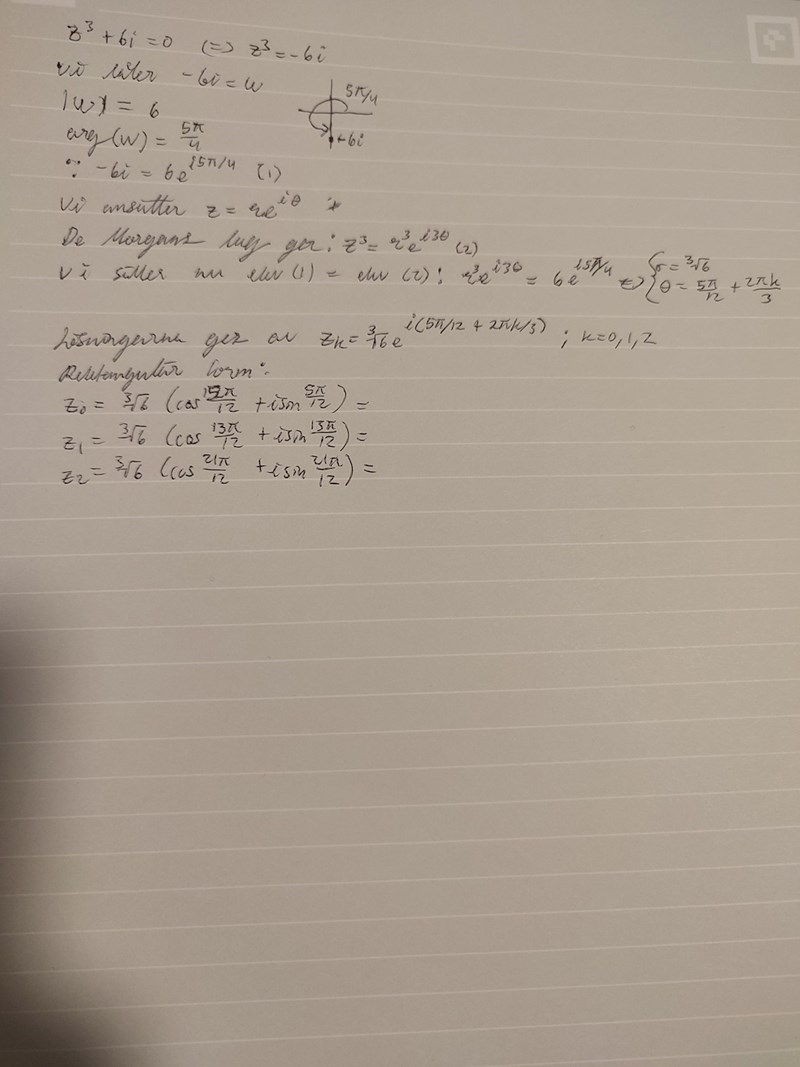 z³ + 6i = 0 (=) z³ = -6i
Vi låter -6i = w
|w| = 6
5π/4
←6i
arg(w) = 5π/4
∵ -6i = 6e^{i5π/4} (1)
Vi ansätter z = re^{iθ}
De Morgans lag ger: z³ = r³e^{i3θ} (2)
Vi sätter nu ekv (1) = ekv (2): r³e^{i3θ} = 6e^{i5π/4} ⇔ { r = ³√6
θ = 5π/12 + 2πk/3
Lösningarna ges av z_k = ³√6 e^{i(5π/12 + 2πk/3)} ; k=0,1,2
Rektangulär form:
z₀ = ³√6 (cos 5π/12 + i sin 5π/12) =
z₁ = ³√6 (cos 13π/12 + i sin 13π/12) =
z₂ = ³√6 (cos 21π/12 + i sin 21π/12) =